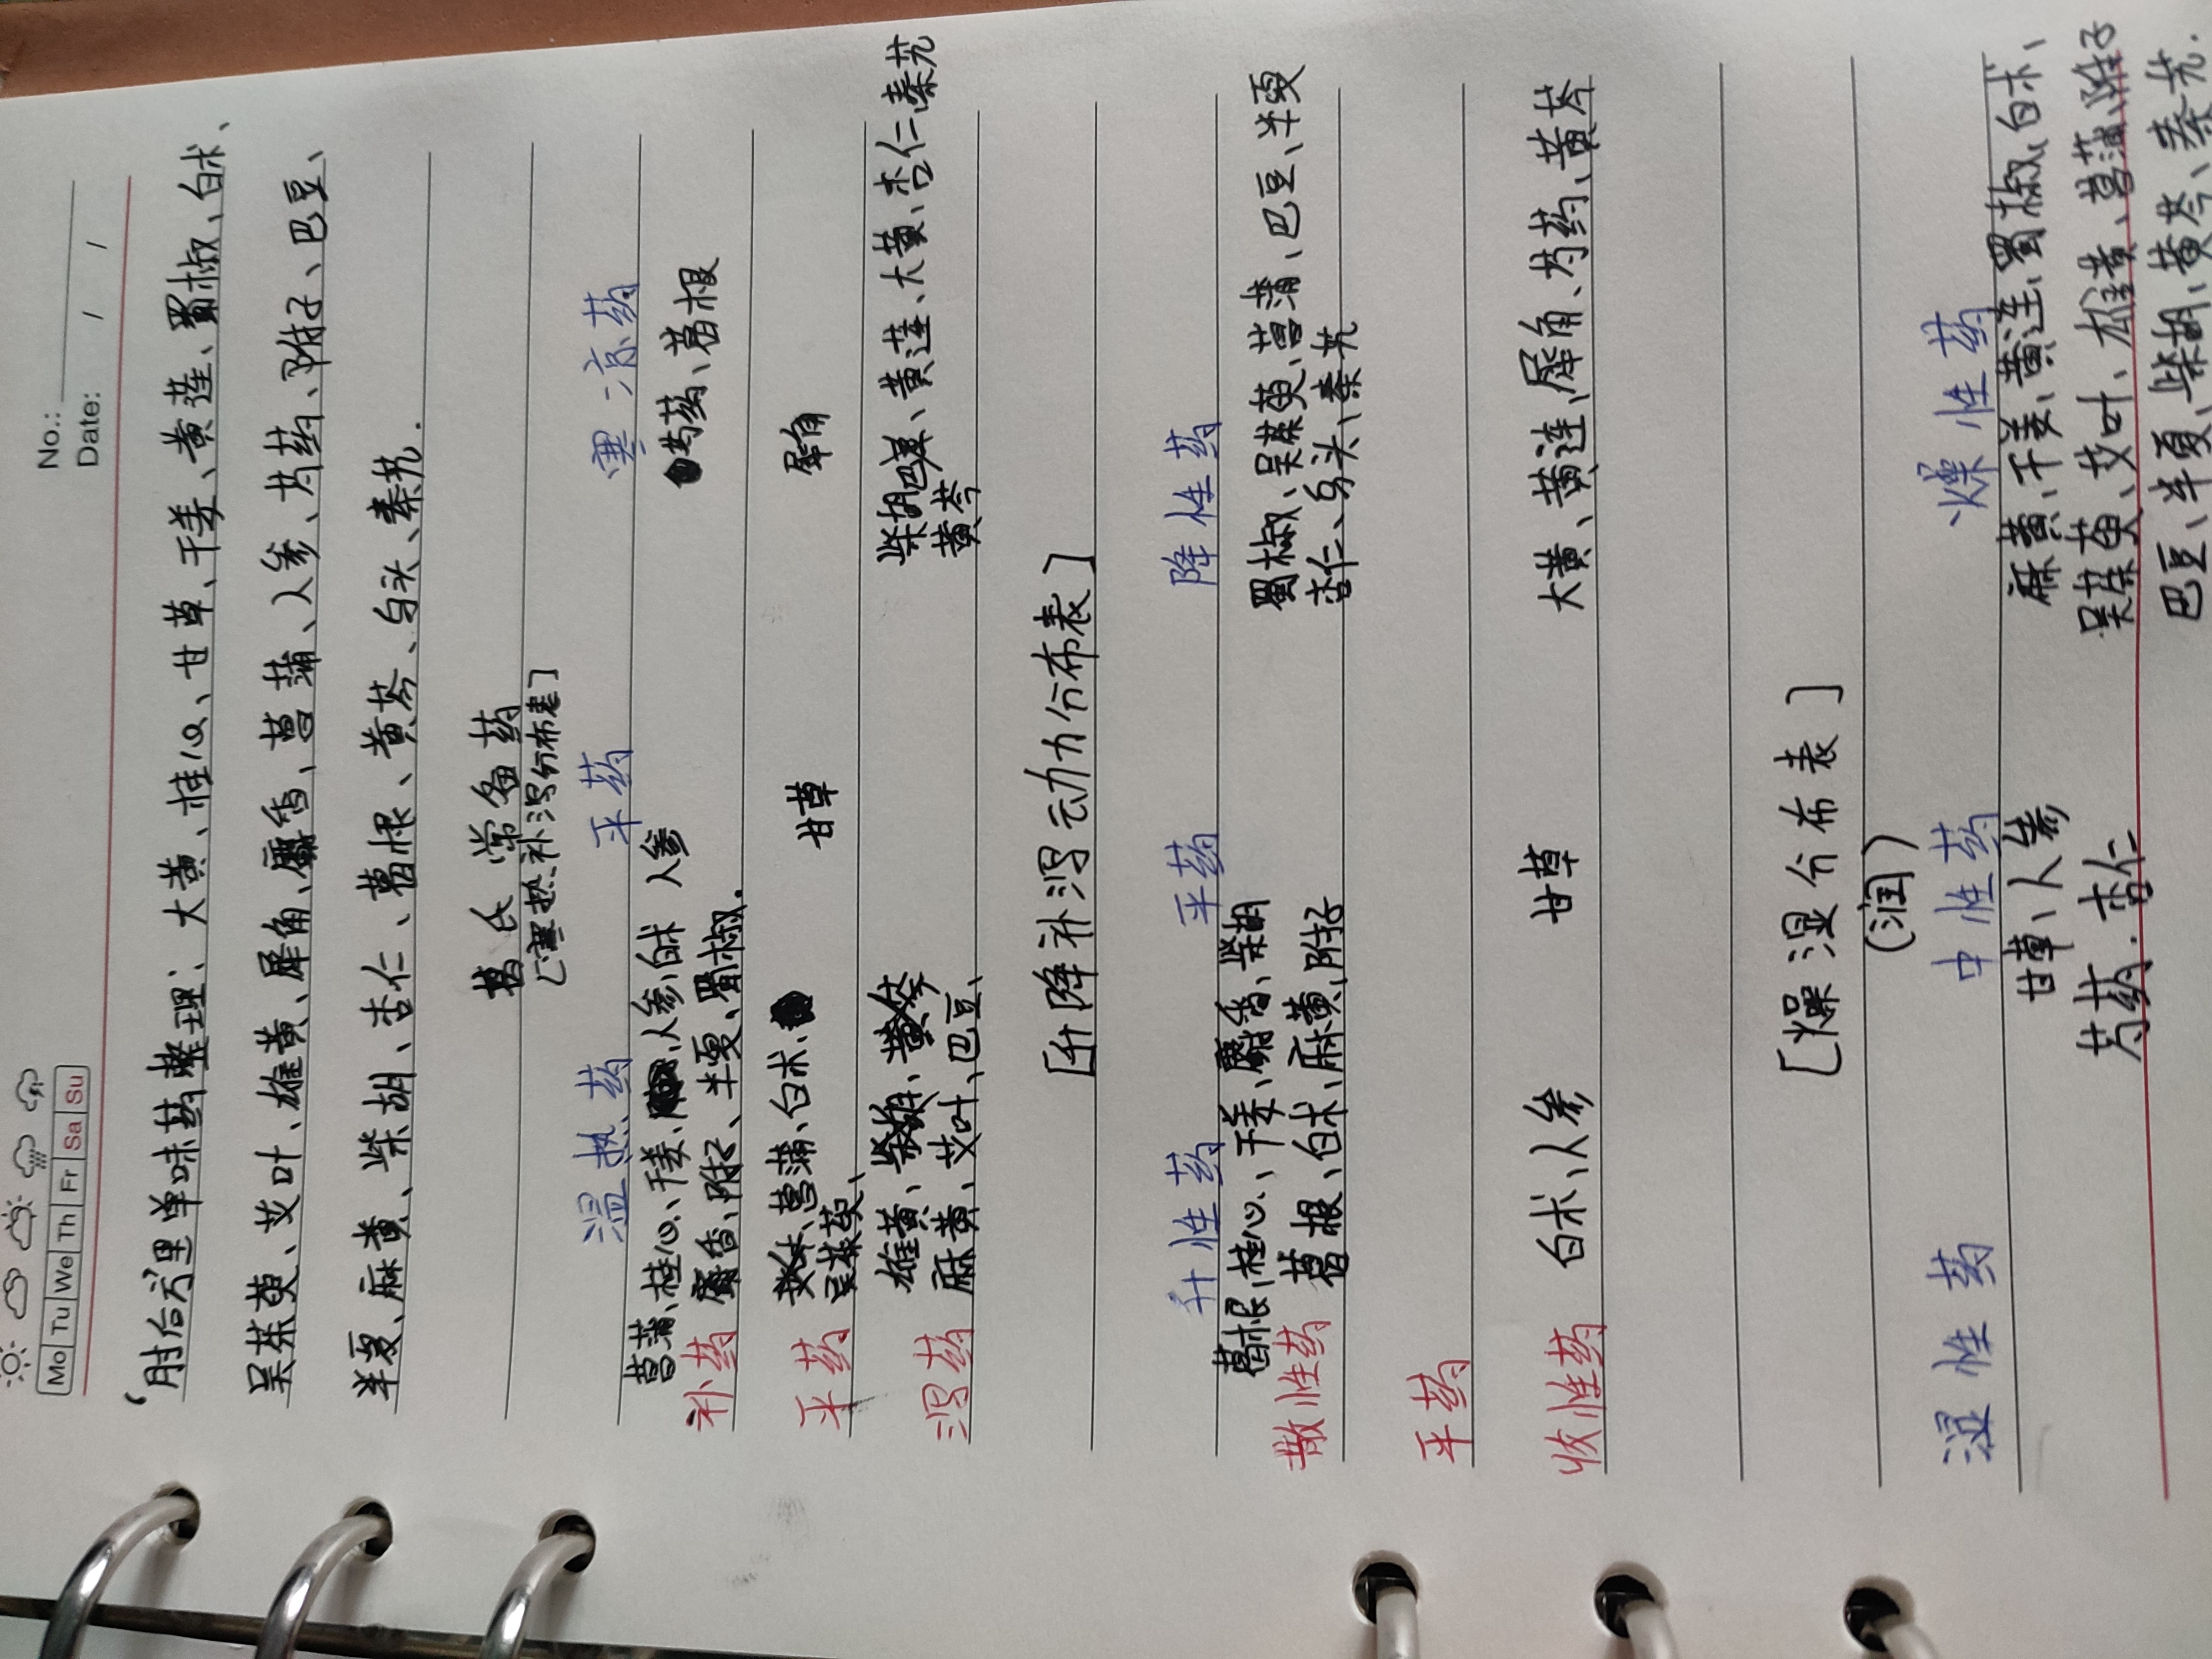 No.:
Date: / /
Mo Tu We Th Fr Sa Su
肘后方里单味药整理：大黄、桂心、甘草、干姜、黄莲、蜀椒、白术、
吴茱萸、艾叶、雄黄、犀角、麝香、菖蒲、人参、芍药、附子、巴豆、
半夏、麻黄、柴胡、杏仁、葛根、黄芩、乌头、秦艽.
葛氏常备药
[寒热、补泻分布表]
温热药 平药 寒凉药
菖蒲、桂心、干姜、人参、白术 人参 芍药、葛根
补药 麝香、附子、半夏、蜀椒.
艾叶、菖蒲、白术、 甘草 犀角
平药 吴茱萸、
雄黄、柴胡、黄芩 柴胡、巴豆、黄莲、大黄、杏仁、秦艽
泻药 麻黄、艾叶、巴豆、 黄芩
[升降补泻动力分布表]
升性药 平药 降性药
葛根、桂心、干姜、麝香、柴胡 蜀椒、吴茱萸、菖蒲、巴豆、半夏
散性药 葛根、白术、麻黄、附子 杏仁、乌头、秦艽
平药
收性药 白术、人参 甘草 大黄、黄莲、犀角、芍药、黄芩
[燥湿分布表]
(润)
湿性药 中性药 燥性药
甘草、人参 麻黄、干姜、黄连、蜀椒、白术、
芍药、杏仁 吴茱萸、艾叶、雄黄、菖蒲、附子
巴豆、半夏、柴胡、黄芩、秦艽.